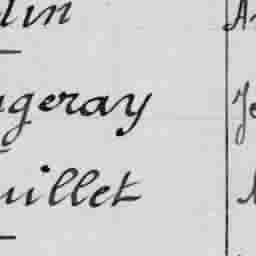 lin A
ugeray Je
uillet